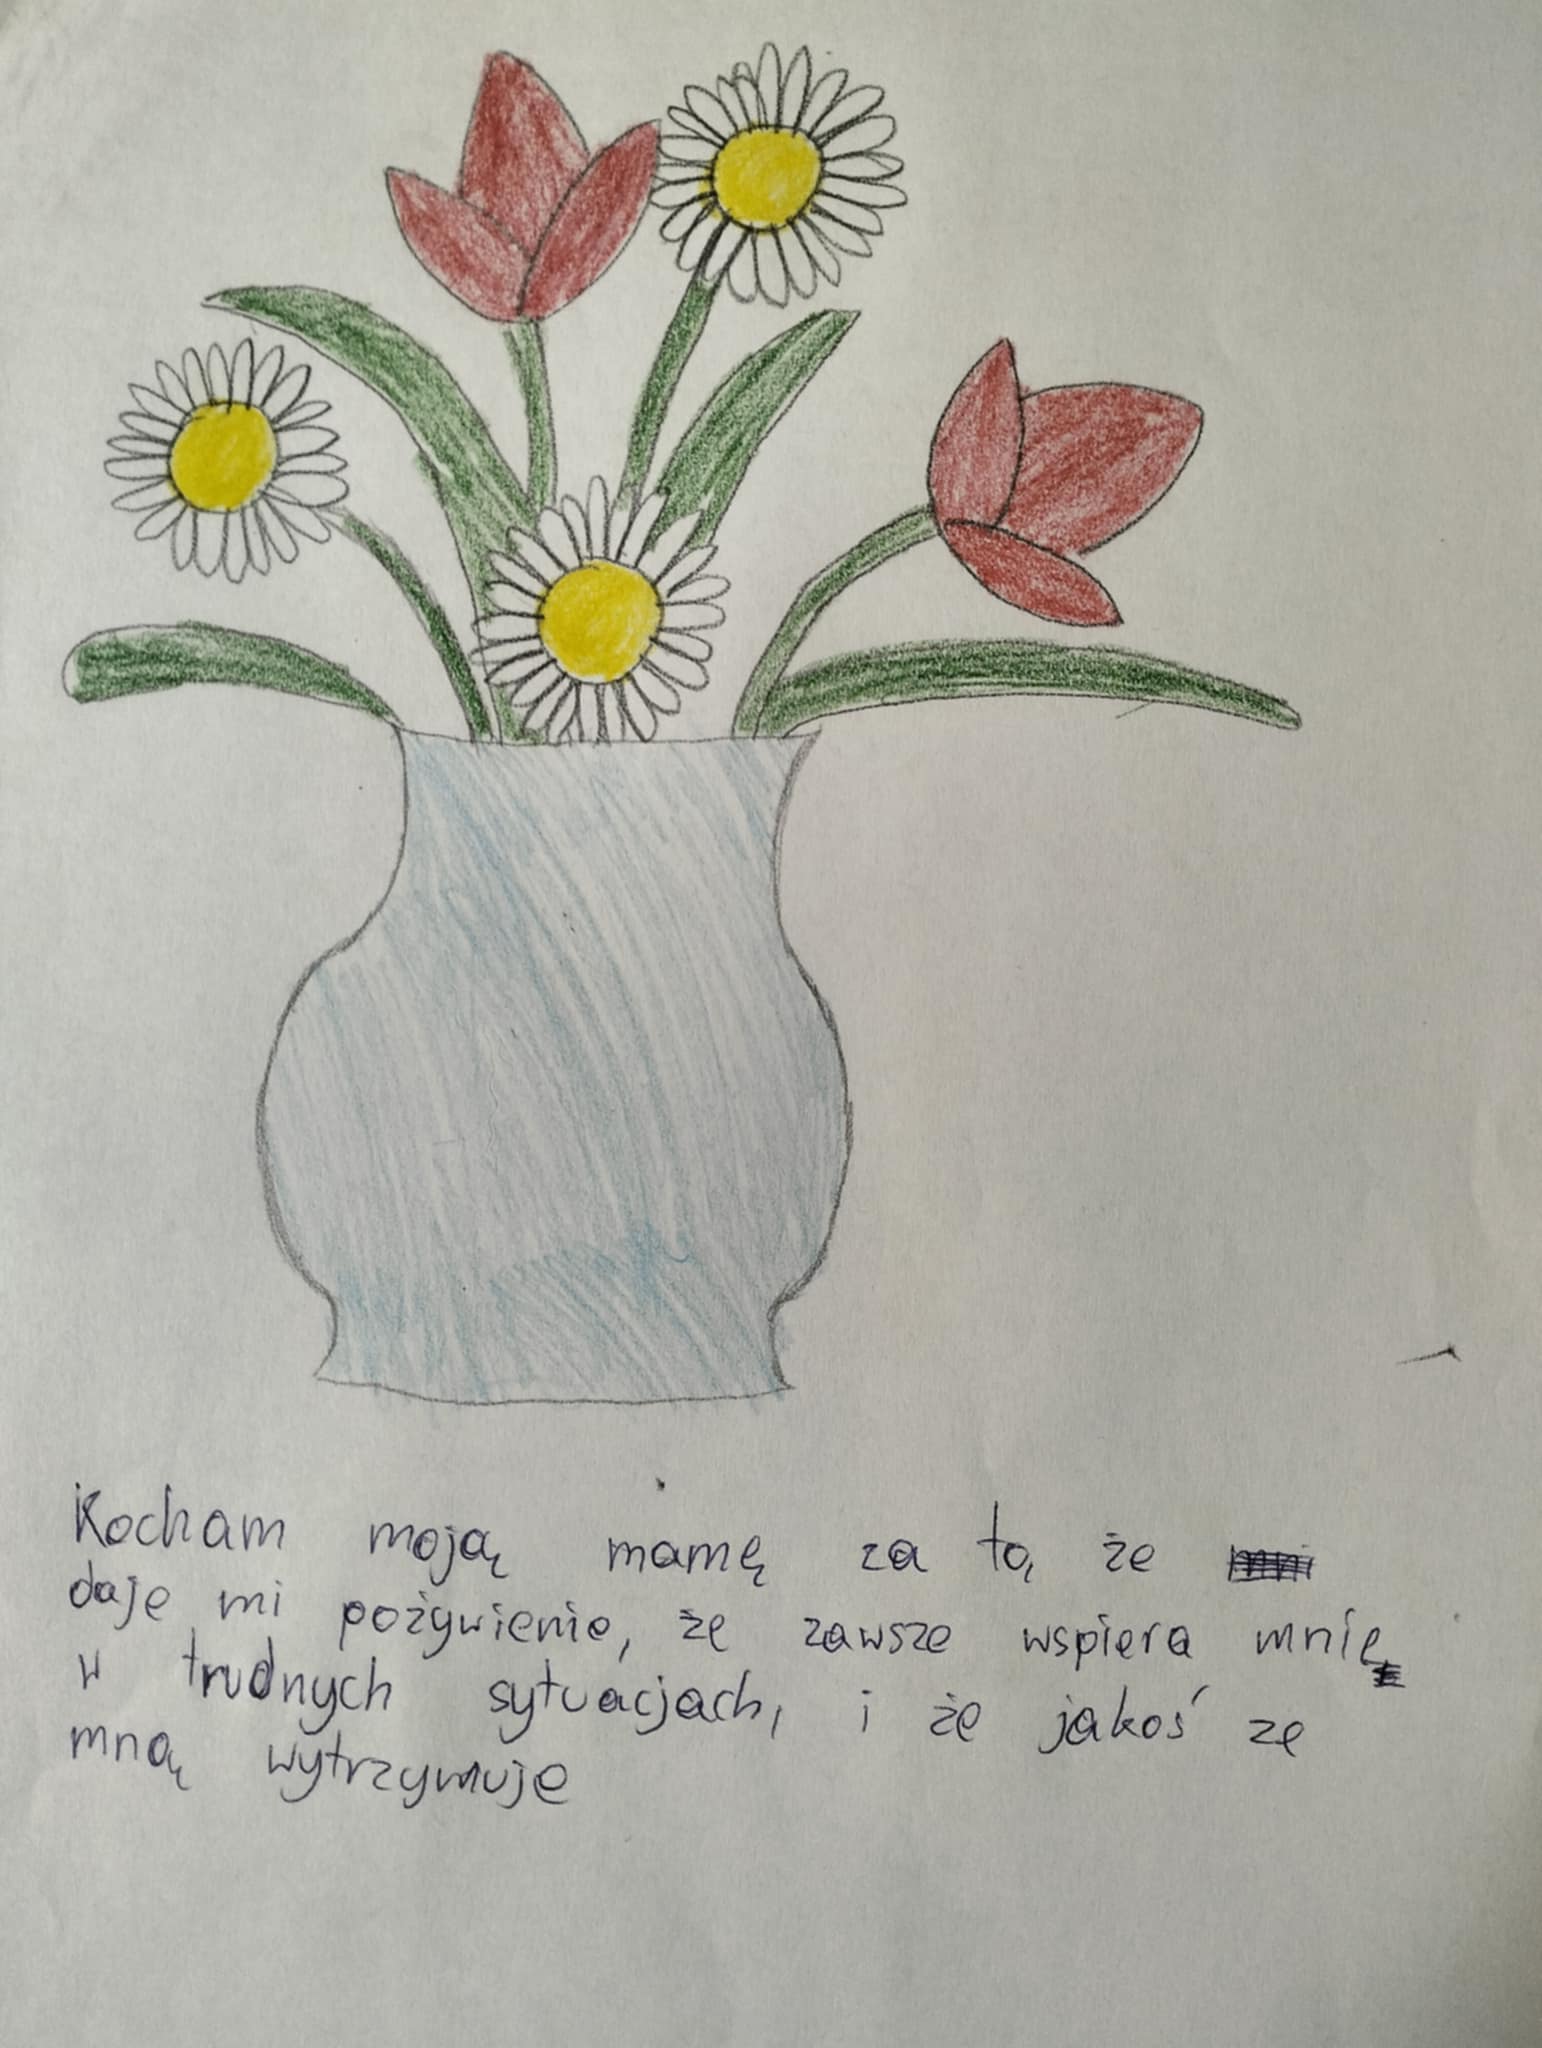 Kocham moją mamę za to, że
daje mi pożywienie, że zawsze wspiera mnie
w trudnych sytuacjach, i że jakoś ze
mną wytrzymuje